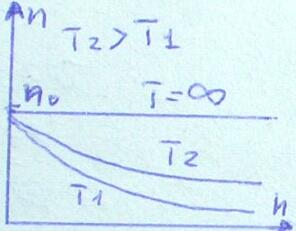 n
T2 > T1
n0
T = ∞
T2
T1
h